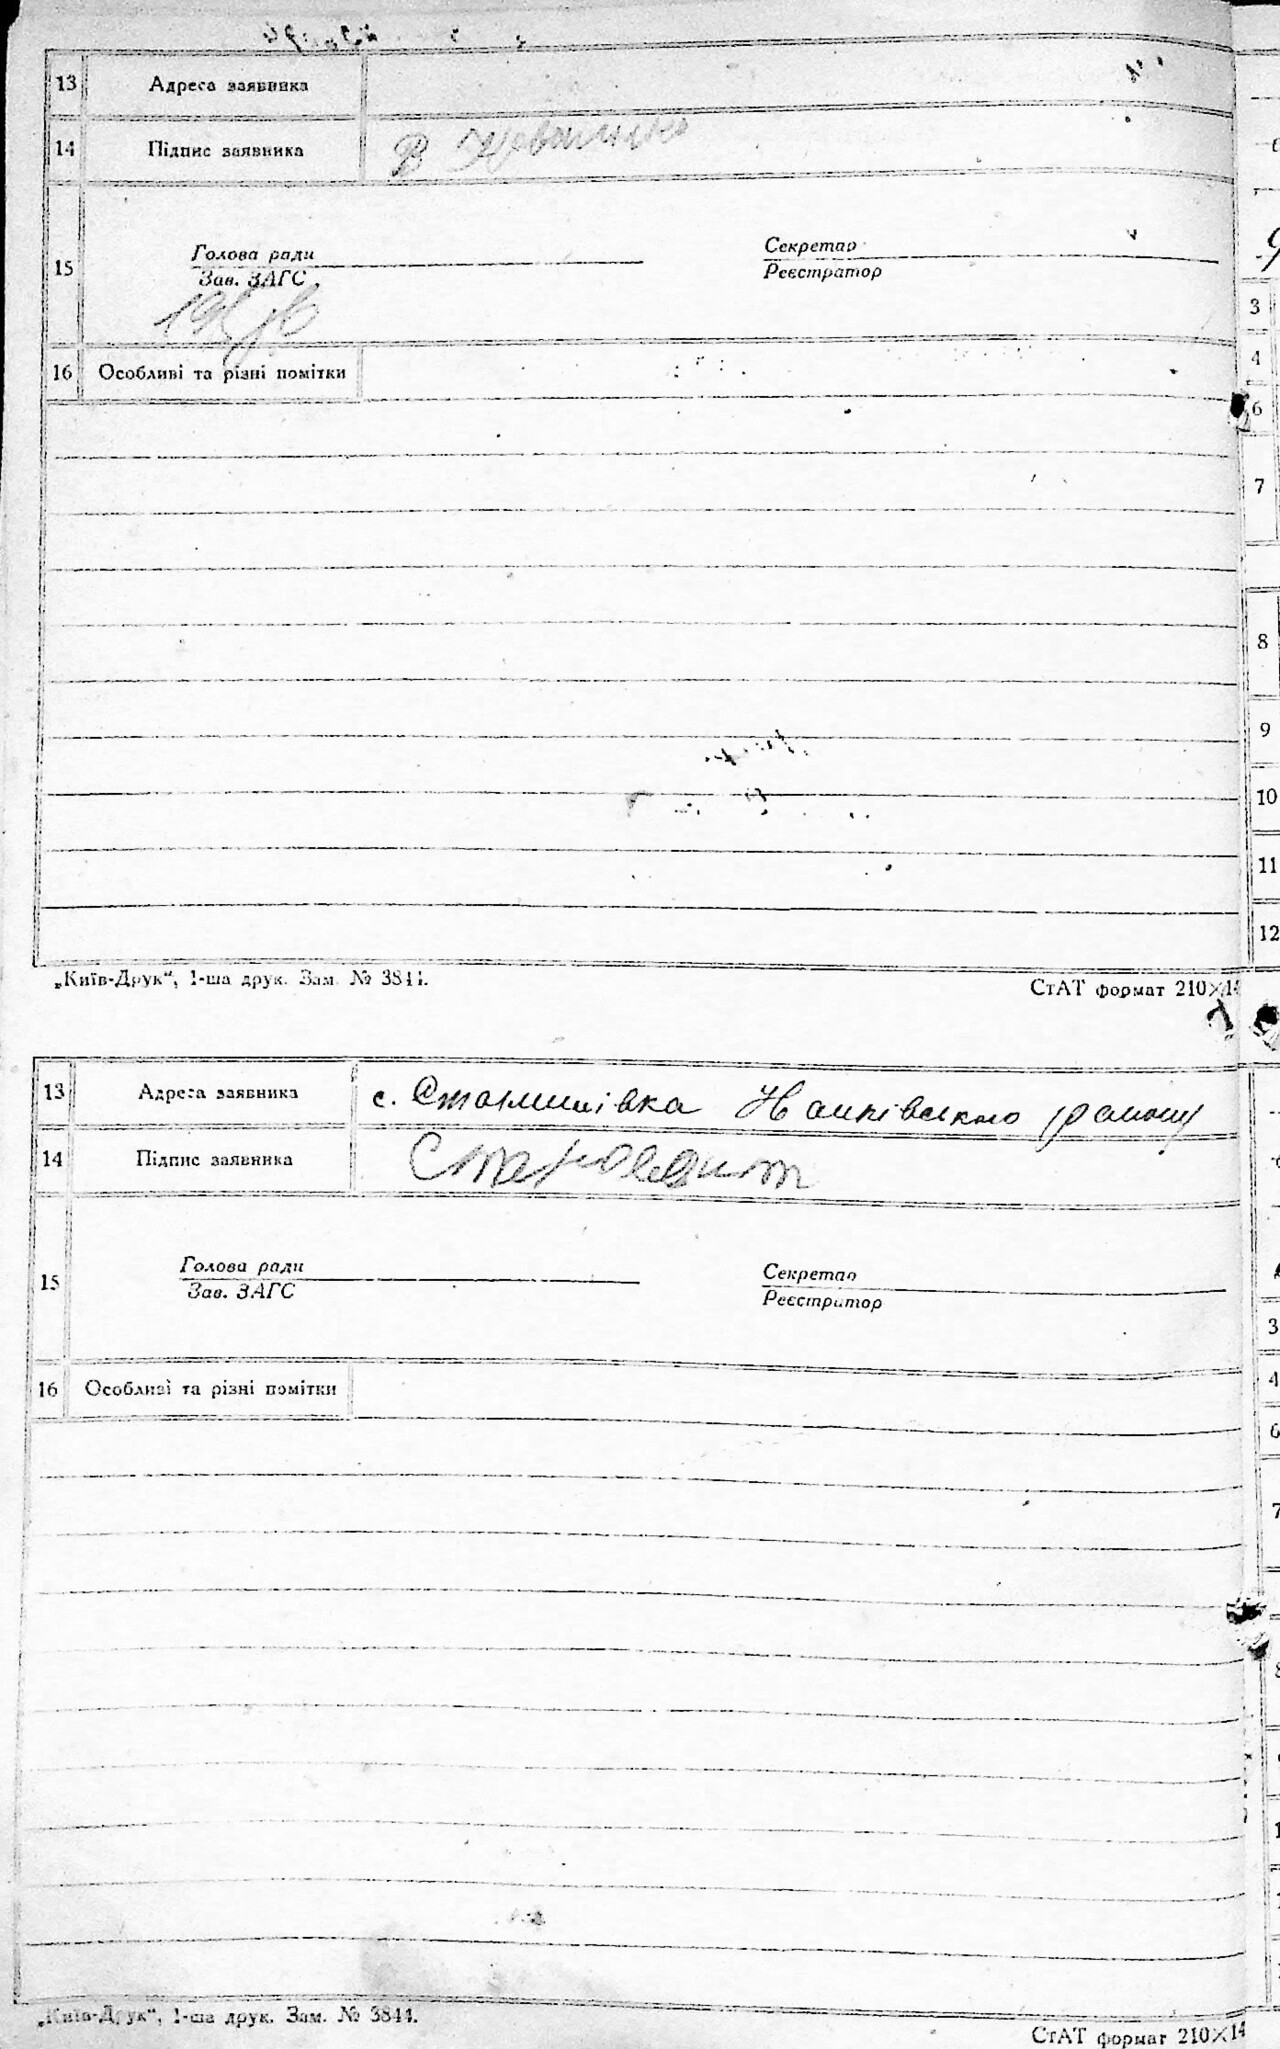 13 Адреса заявника
14 Підпис заявника В
15 Голова ради Секретар
Зав. ЗАГС Реєстратор
16 Особливі та різні помітки
„Київ-Друк“, 1-ша друк. Зам. № 3844.
СтАТ формат 210×14
13 Адреса заявника с. району
14 Підпис заявника
15 Голова ради Секретар
Зав. ЗАГС Реєстратор
16 Особливі та різні помітки
„Київ-Друк“, 1-ша друк. Зам. № 3844.
СтАТ формат 210×14
3
4
6
7
8
9
10
11
12
3
4
6
7